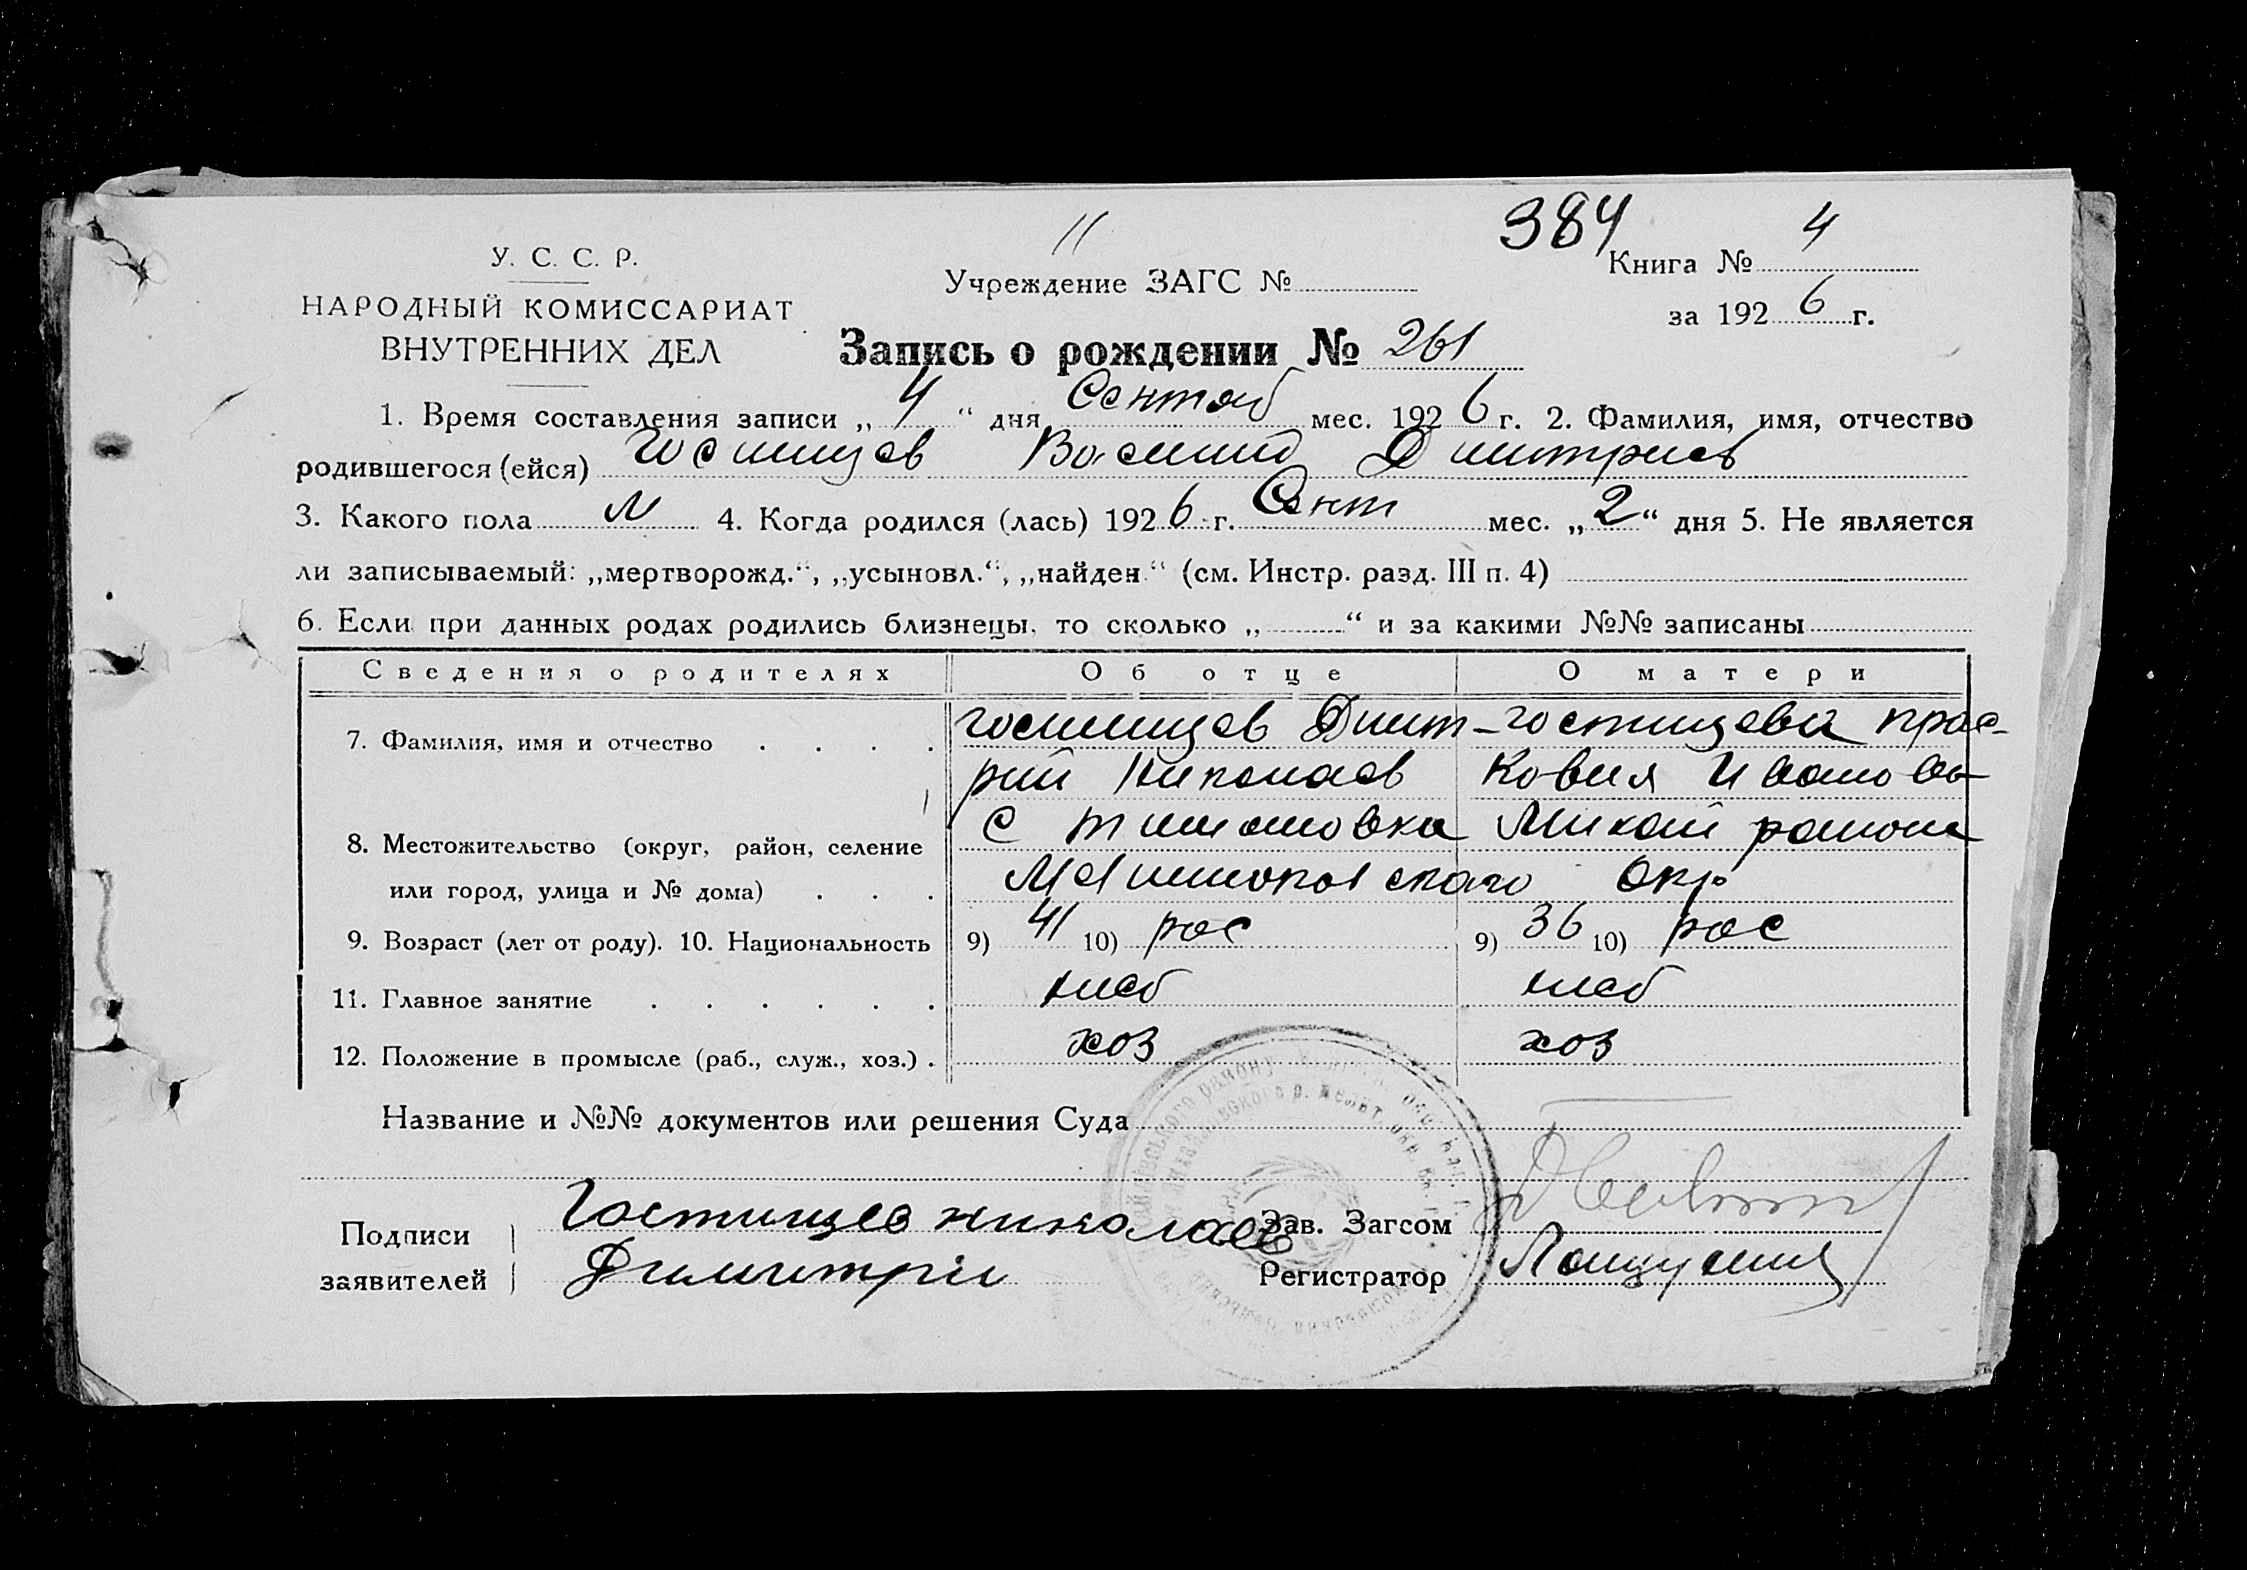 384
11
У. С. С. Р.
Учреждение ЗАГС №
Книга № 4
НАРОДНЫЙ КОМИССАРИАТ
ВНУТРЕННИХ ДЕЛ
за 1926 г.
Запись о рождении № 261
1. Время составления записи „4“ дня Сентяб мес. 1926 г. 2. Фамилия, имя, отчество
родившегося (ейся) Гостищев Василий Дмитриев
3. Какого пола М 4. Когда родился (лась) 1926 г. Сент мес. „2“ дня 5. Не является
ли записываемый: „мертворожд.“, „усыновл.“, „найден“ (см. Инстр. разд. III п. 4)
6. Если при данных родах родились близнецы, то сколько „ “ и за какими №№ записаны
Сведения о родителях Об отце О матери
7. Фамилия, имя и отчество Гостищев Дмит- Гостищева Прас-
рий Николаев ковия Иванов
8. Местожительство (округ, район, селение С Тимошовка Михай района
или город, улица и № дома) Мелитопольского Окр
9. Возраст (лет от роду). 10. Национальность 9) 41 10) рос 9) 36 10) рос
11. Главное занятие хлеб хлеб
12. Положение в промысле (раб., служ., хоз.) хоз хоз
Название и №№ документов или решения Суда
Подписи заявителей
Гостищев николаев
Димитрiи
Зав. Загсом
Регистратор